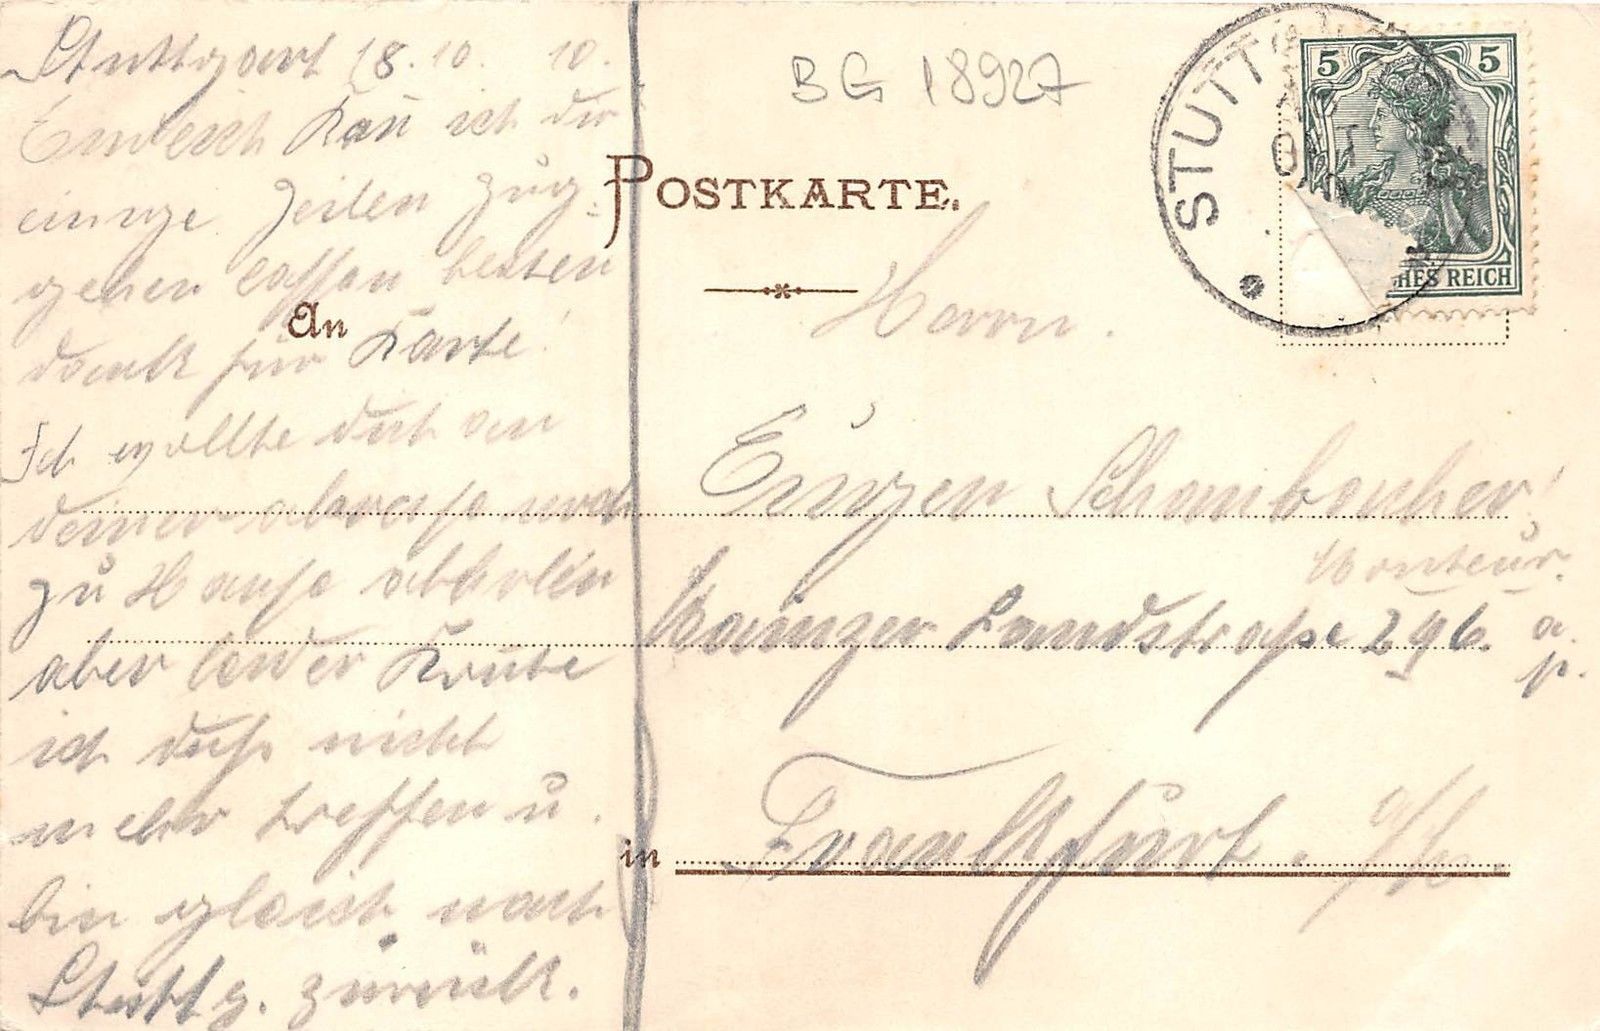 Stuttgart 18.10. 10.
Endlich kan̄ ich dir
einige Zeilen zug-
gehen lassen besten
dank für Karte!
Ich wollte dich an
deiner abreise noch
zu Hause abholen
aber leider konte
ich dich nicht
mehr treffen u.
bin gleich nach
Stuttg. zurück.
BG 18927
POSTKARTE.
An
Herrn.
Eugen Schambacher
Monteur.
Mainzer Landstraße 296. a.
in Frankfurt. a/M.
STUTT
5 5
HES REICH